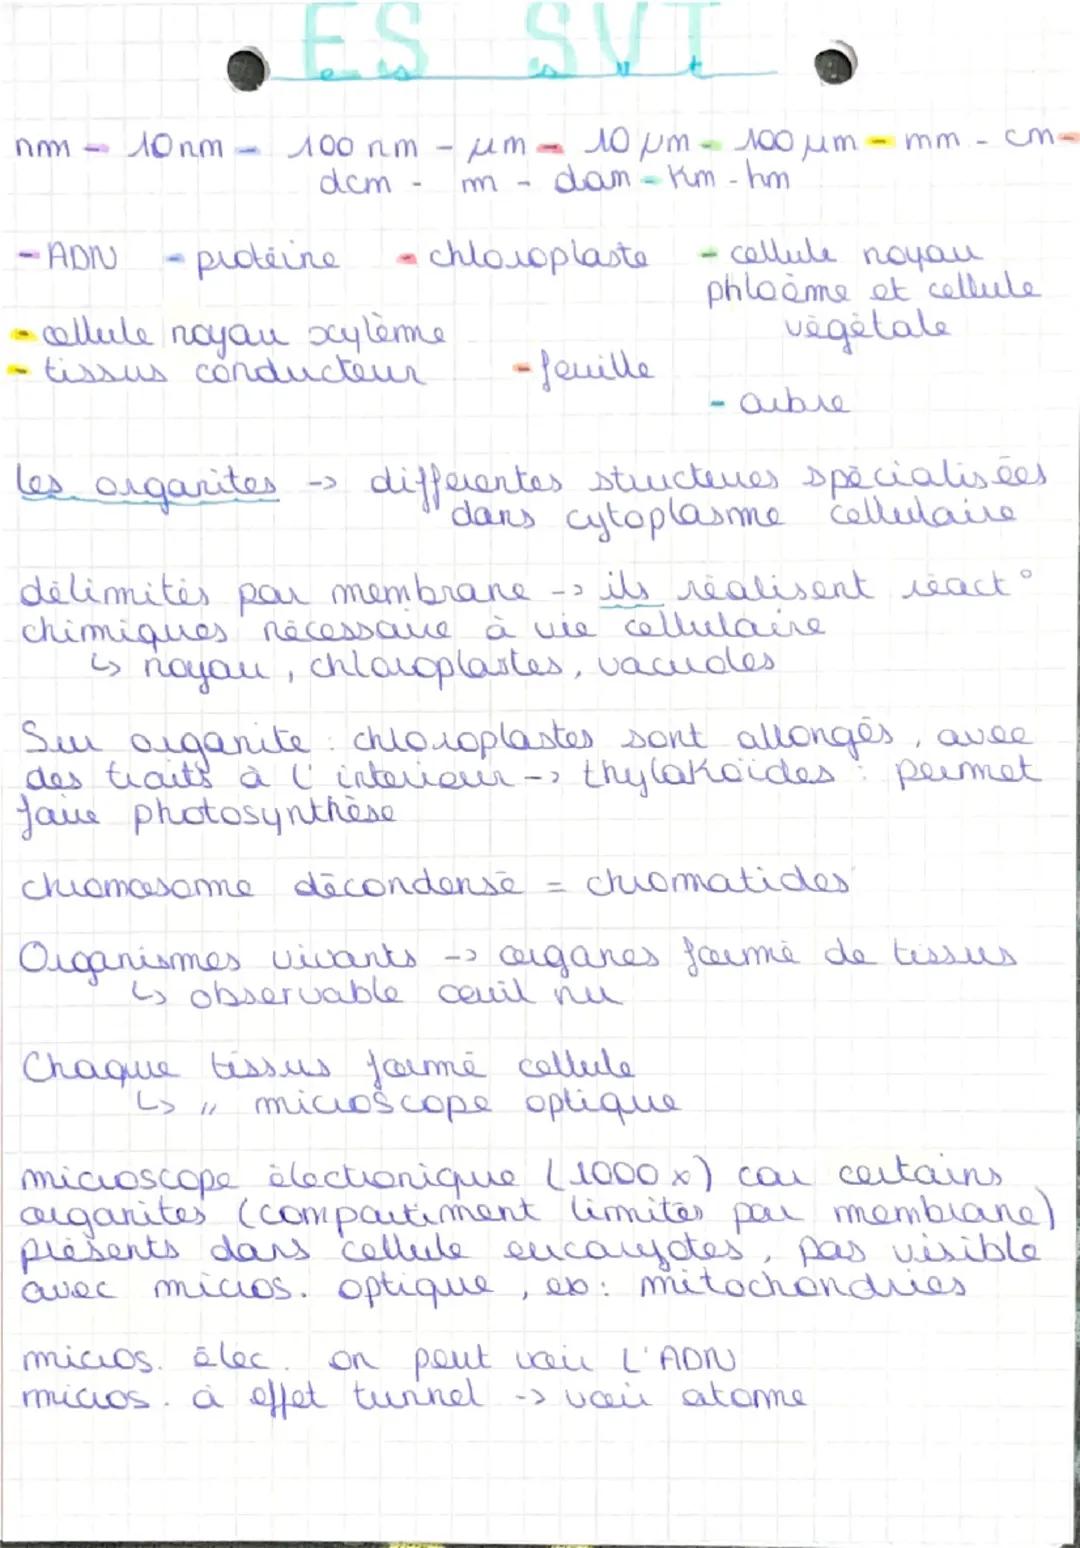 ES SVT
nm - 10nm - 100 nm - µm - 10 µm - 100 µm - mm - cm -
dcm - m - dam - Km - hm
- ADN - protéine - chloroplaste - cellule noyau
phloème et cellule
végétale
- cellule noyau xylème
- tissus conducteur - feuille
- arbre
les organites -> différentes structures spécialisées
dans cytoplasme cellulaire
délimités par membrane -> ils réalisent réact°
chimiques nécessaire à vie cellulaire
↳ noyau, chloroplastes, vacuoles
Sur organite : chloroplastes sont allongés, avec
des traits à l'interieur -> thylakoïdes : permet
faire photosynthèse
chromosome décondensé = chromatides
Organismes vivants -> organes formé de tissus
↳ observable oeuil nu
Chaque tissus formé cellule
↳ " microscope optique
microscope électronique (1000x) car certains
organites (compartiment limités par membrane)
présents dans cellule eucaryotes, pas visible
avec micros. optique, ex: mitochondries
micros. élec. on peut voir L'ADN
micros. à effet tunnel -> voir atome